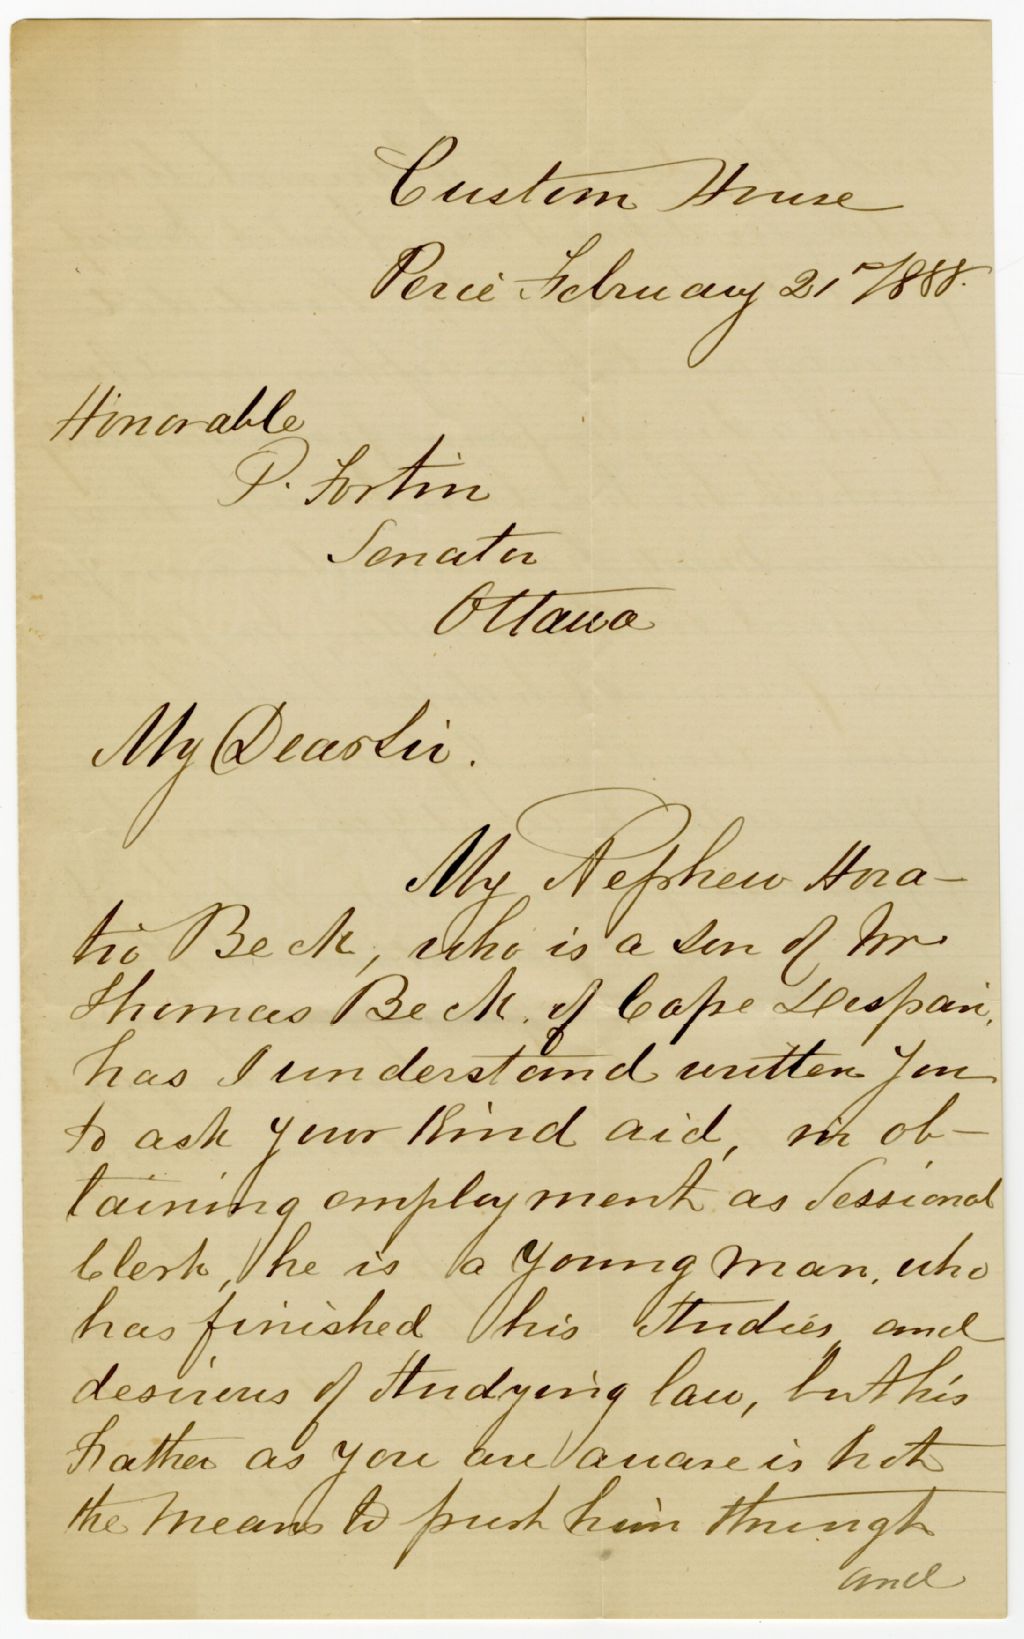 Custom House
Percé February 21st 1888.
Honorable
P. Fortin
Senator
Ottawa
My Dear Sir.
My Nephew Hora-
tio Beck, who is a son of Mr
Thomas Beck. of Cape Despair.
has I understand written you
to ask your kind aid, in ob-
taining employment as Sessional
Clerk, he is a young man, who
has finished his Studies, and
desirous of Studying law, but his
Father as you are aware is not
the means to push him through
and